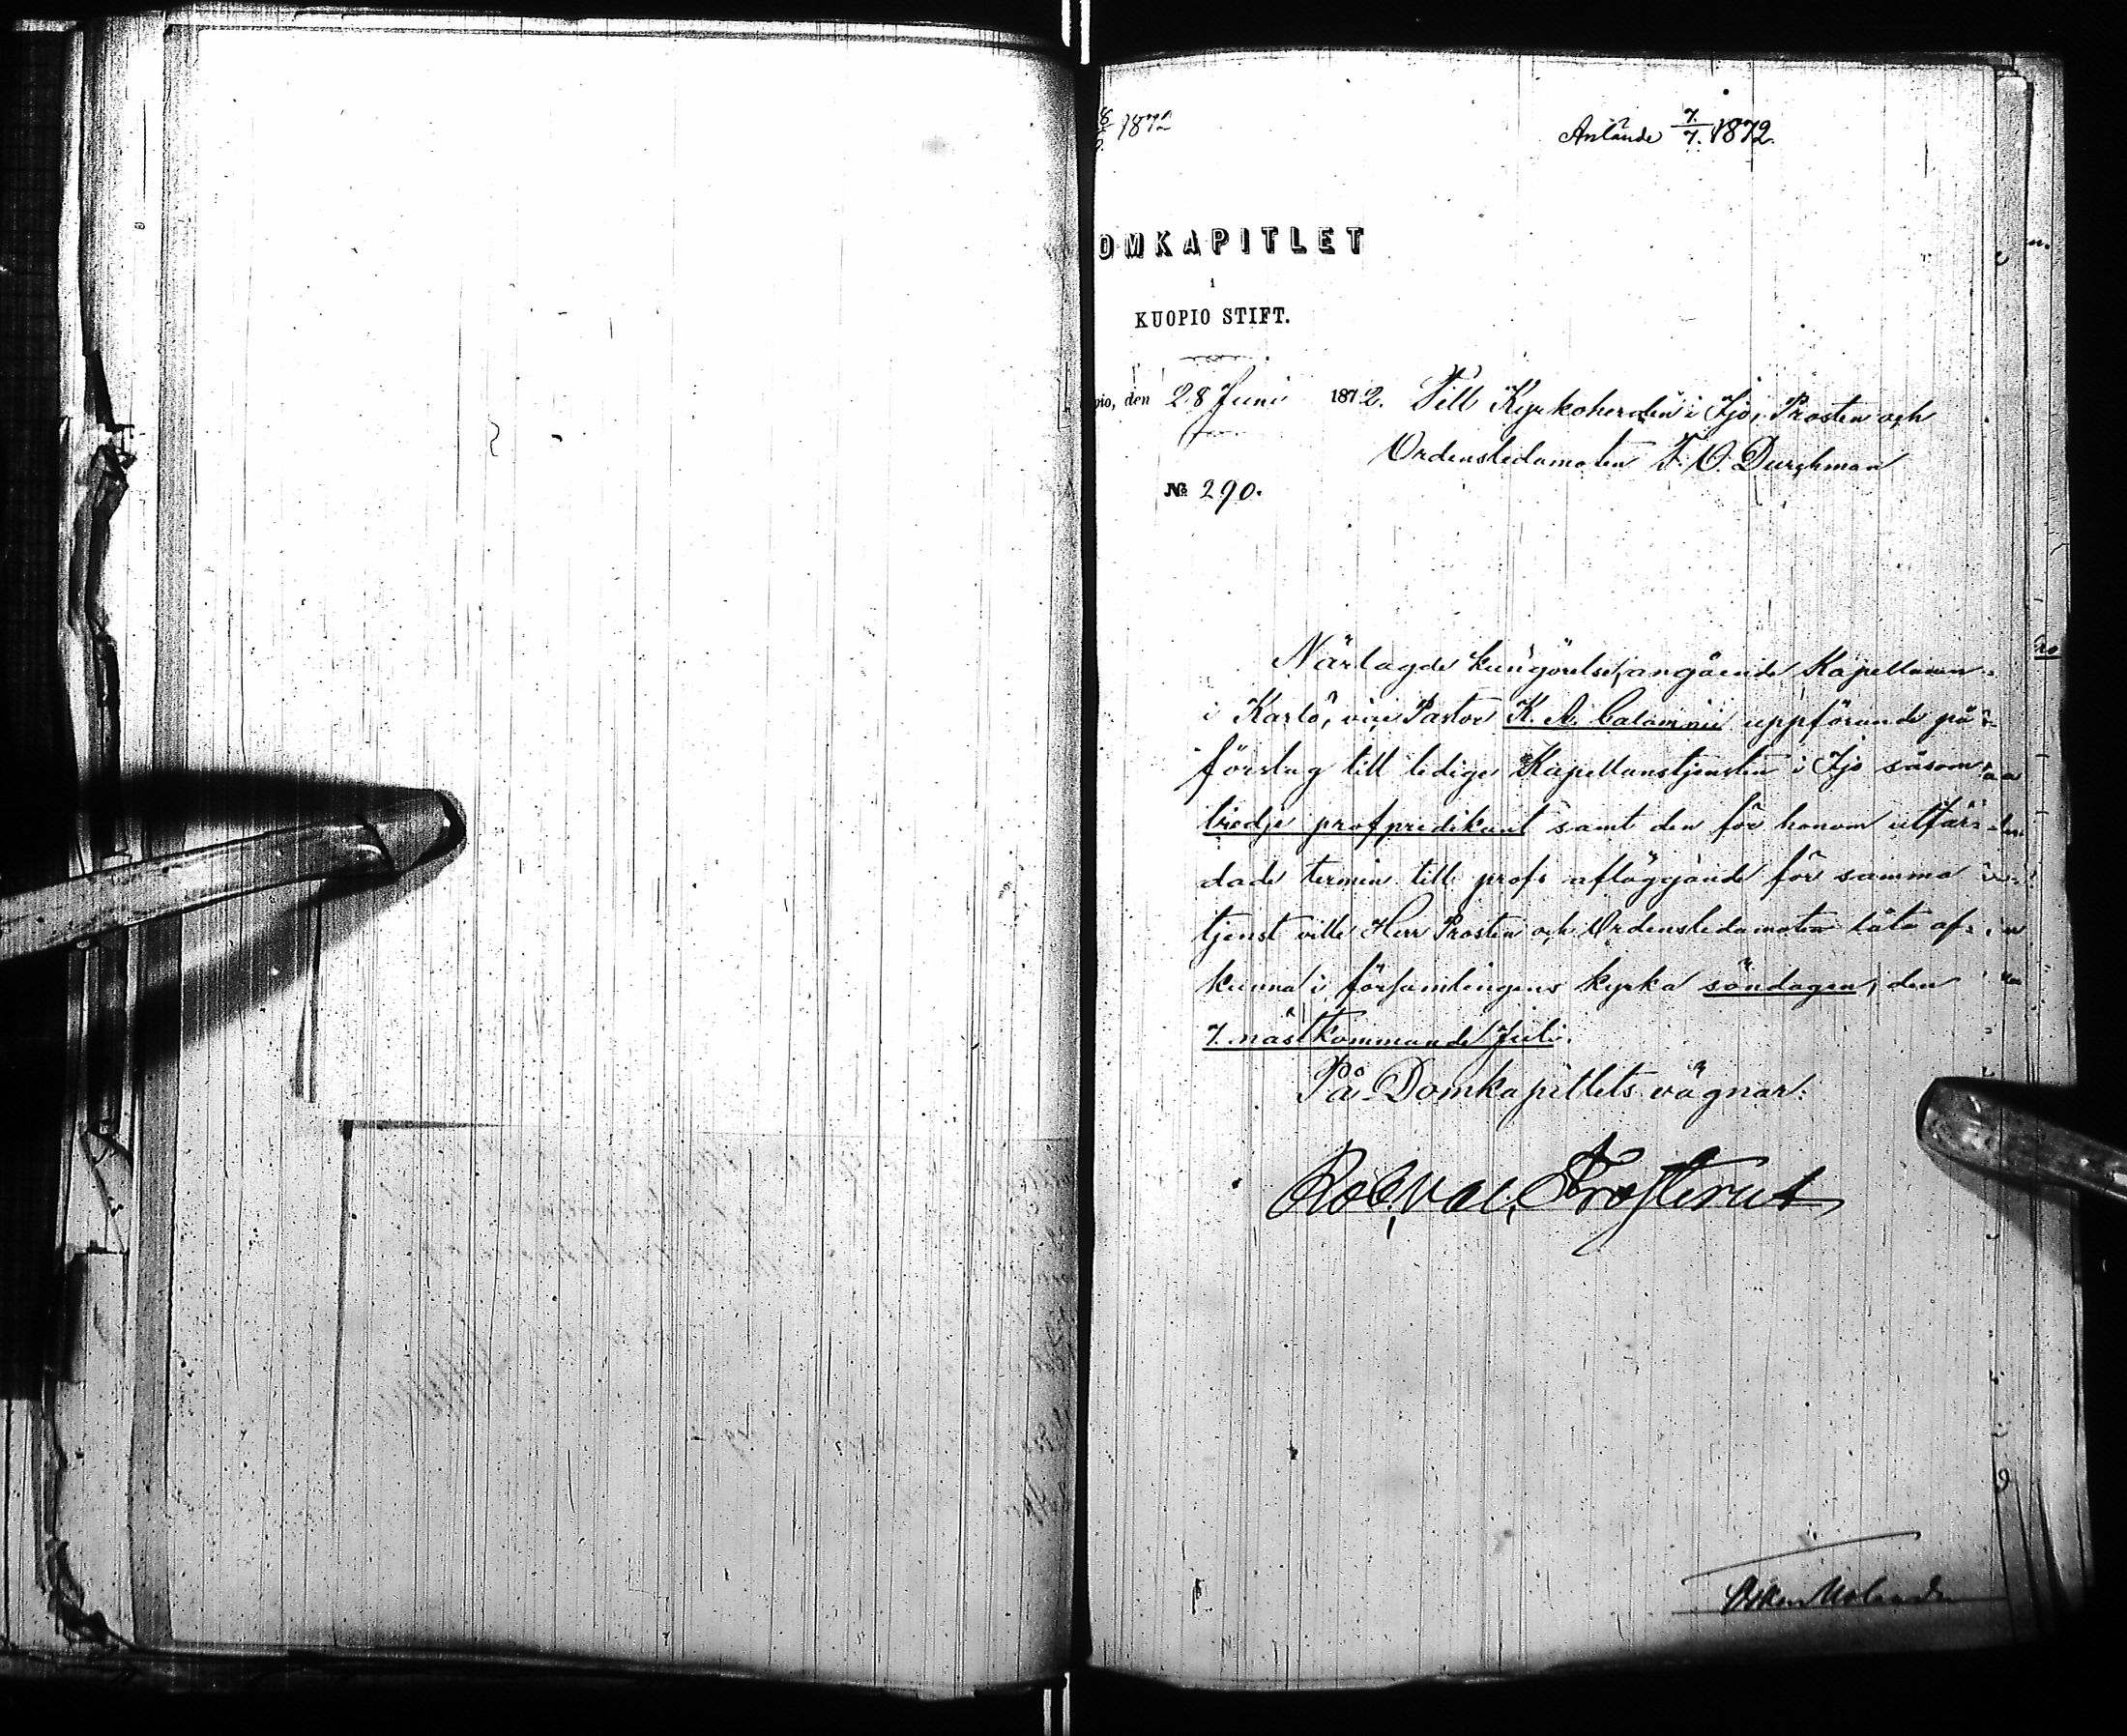 1872
Anlände 7/7. 1872.
OMKAPITLET
i
KUOPIO STIFT.
pio, den 28 Juni 1872. Till Kyrkoherden i Ijo, Prosten och
Ordensledamoten F. O. Durchman
№ 290.
Närlagde kungörelse, angående Kapellanen
i Karlö, vice Pastor K. A. Calamnii uppförande på
förslag till lediga Kapellanstjensten i Ijo såsom
tredje profpredikant samt den för honom utfär-
dade termin till profs afläggande för samma
tjenst ville Herr Prosten och Ordensledamoten låta af-
kunna i församlingens kyrka söndagen, den
7. nästkommande Juli.
På Domkapitlets vägnar:
Rob. Val. Frosterus
Oskar